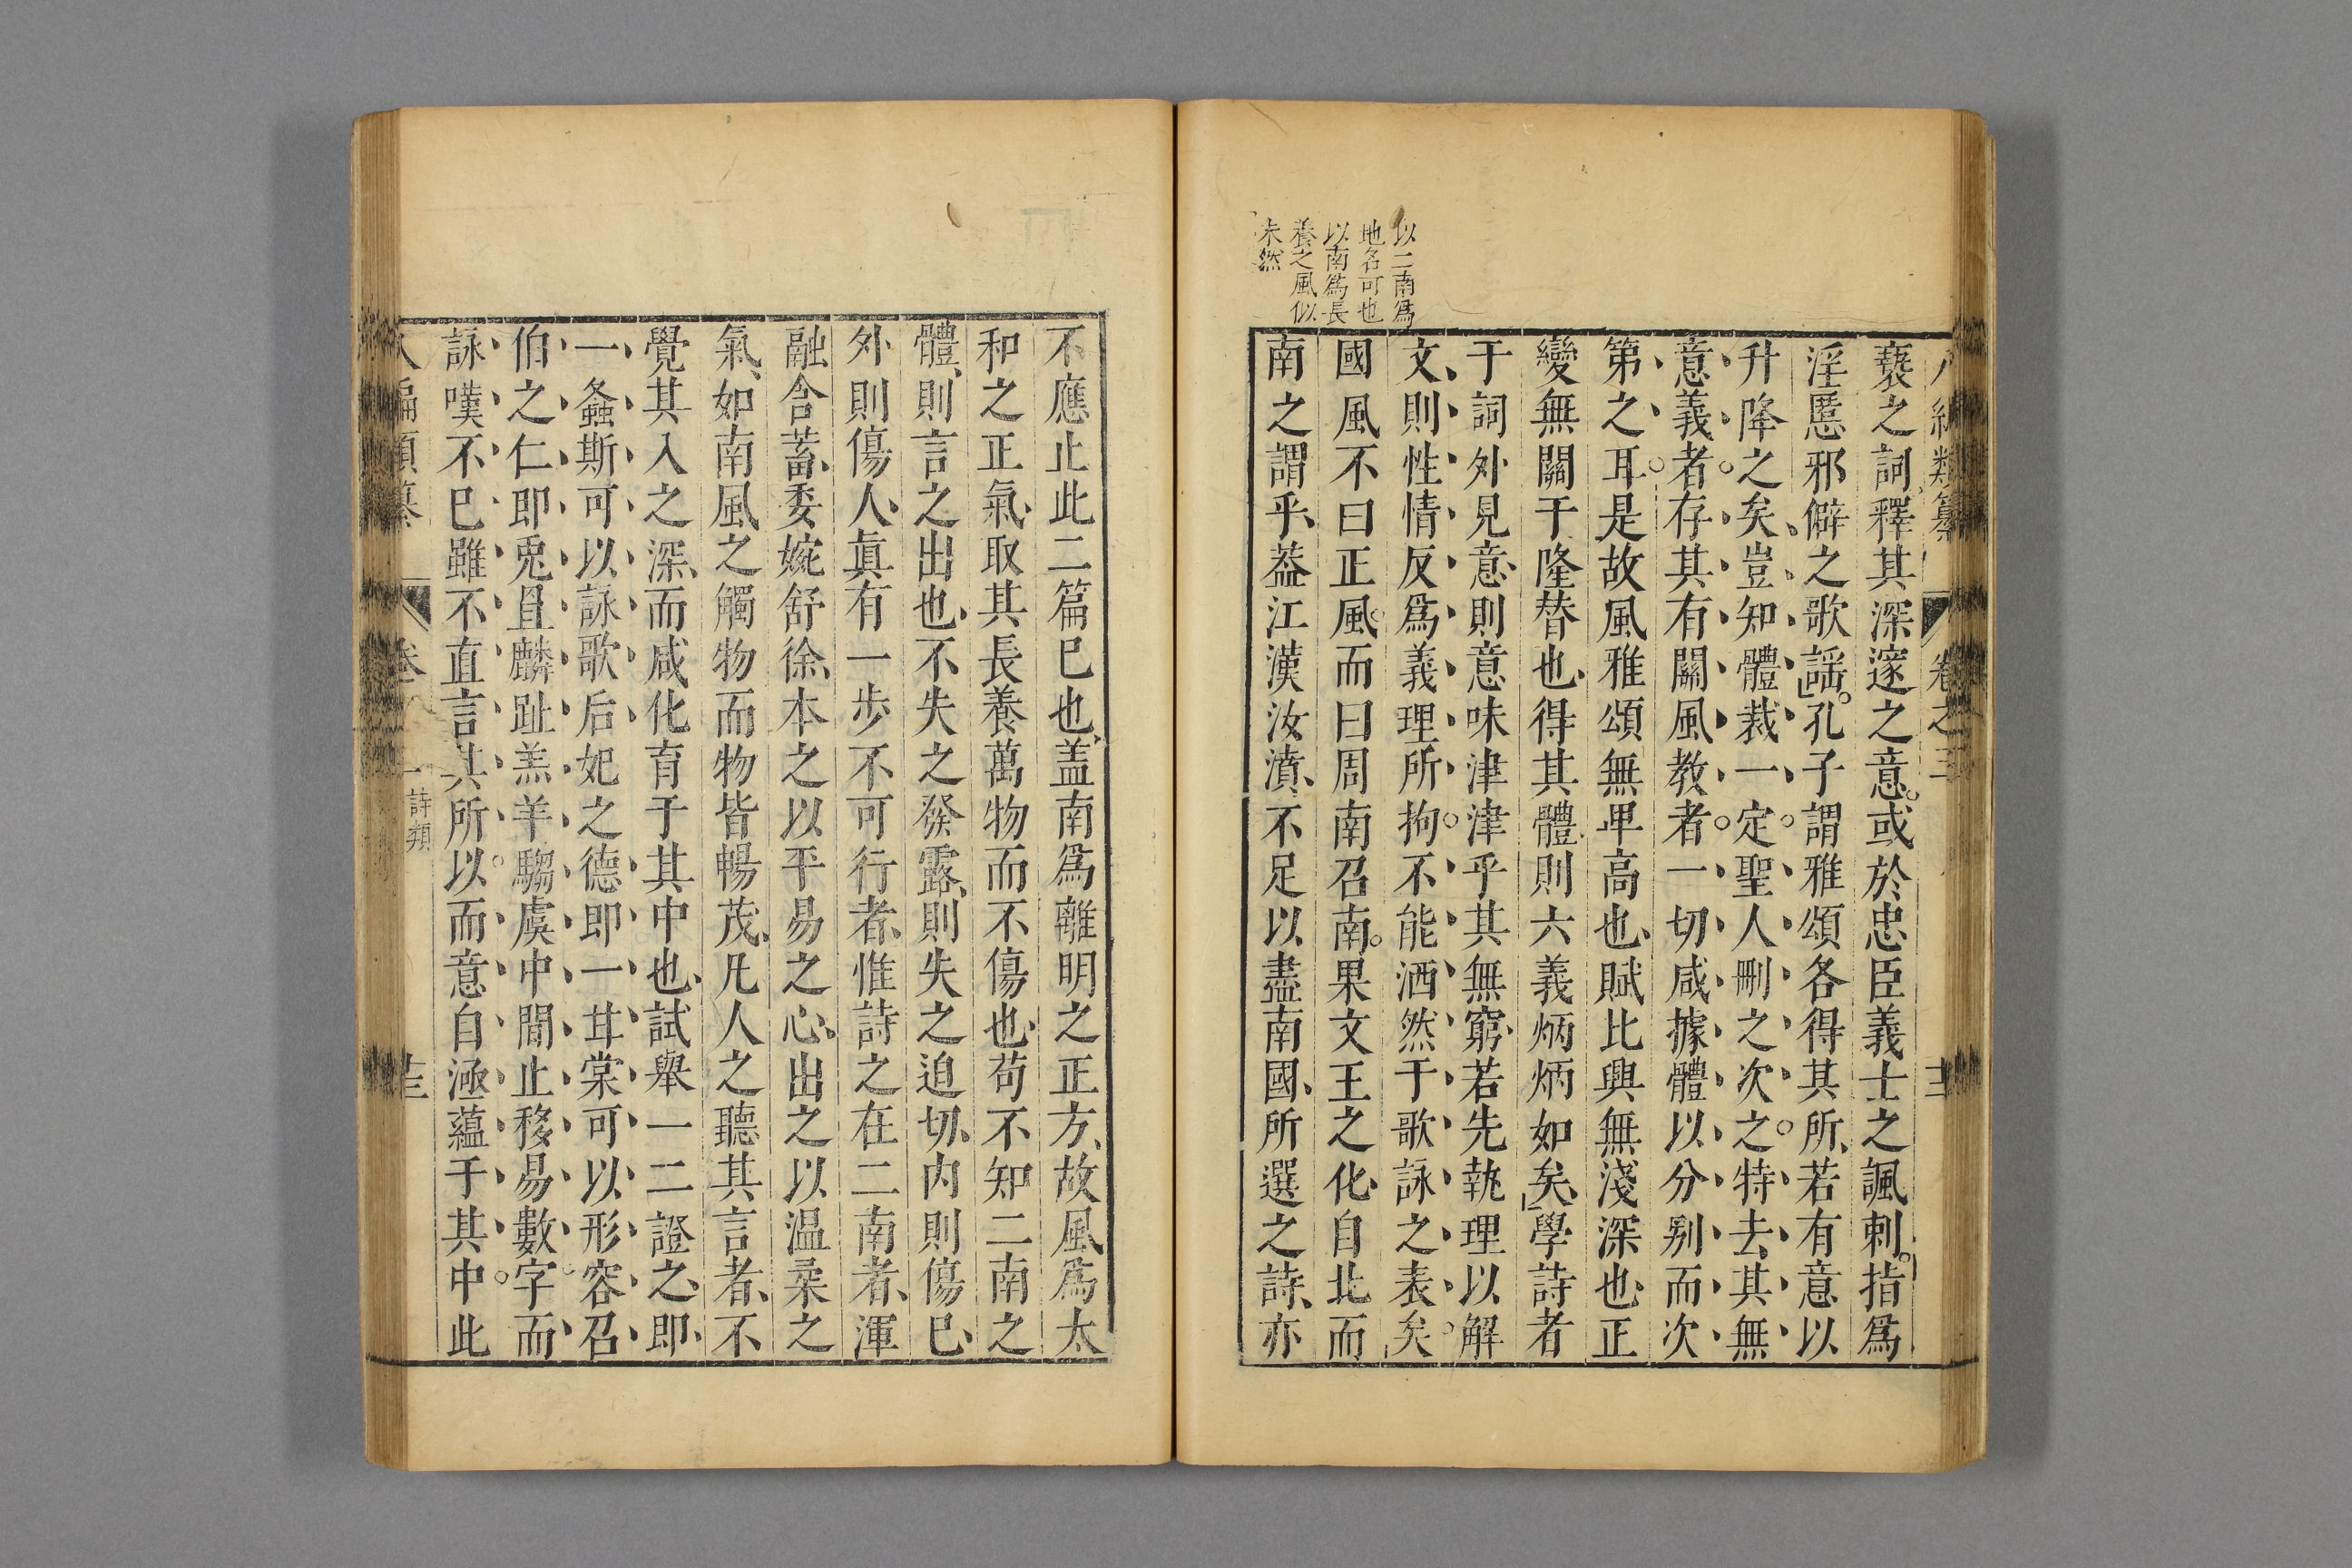 八編類纂 卷之三 十二
褻之詞釋其深邃之意或於忠臣義士之諷刺指爲
淫慝邪僻之歌謡孔子謂雅頌各得其所若有意以
升降之矣豈知體裁一定聖人刪之次之特去其無
意義者存其有關風教者一切咸據體以分别而次
第之耳是故風雅頌無卑高也賦比興無淺深也正
變無關于隆替也得其體則六義炳炳如矣學詩者
于詞外見意則意味津津乎其無窮若先執理以解
文則性情反爲義理所拘不能洒然于歌詠之表矣
國風不曰正風而曰周南召南果文王之化自北而
南之謂乎葢江漢汝濆不足以盡南國所選之詩亦
以二南爲
地名可也
以南爲長
養之風似
未然
不應止此二篇已也盖南爲離明之正方故風爲太
和之正氣取其長養萬物而不傷也苟不知二南之
體則言之出也不失之發露則失之迫切内則傷已
外則傷人眞有一步不可行者惟詩之在二南者渾
融含蓄委婉舒徐本之以平易之心出之以温柔之
氣如南風之觸物而物皆暢茂凡人之聽其言者不
覺其入之深而咸化育于其中也試舉一二證之即
一螽斯可以詠歌后妃之德即一甘棠可以形容召
伯之仁即兎罝麟趾羔羊騶虞中間止移易數字而
詠嘆不已雖不直言其所以而意自涵蘊于其中此
八編類纂 卷 詩類 十三